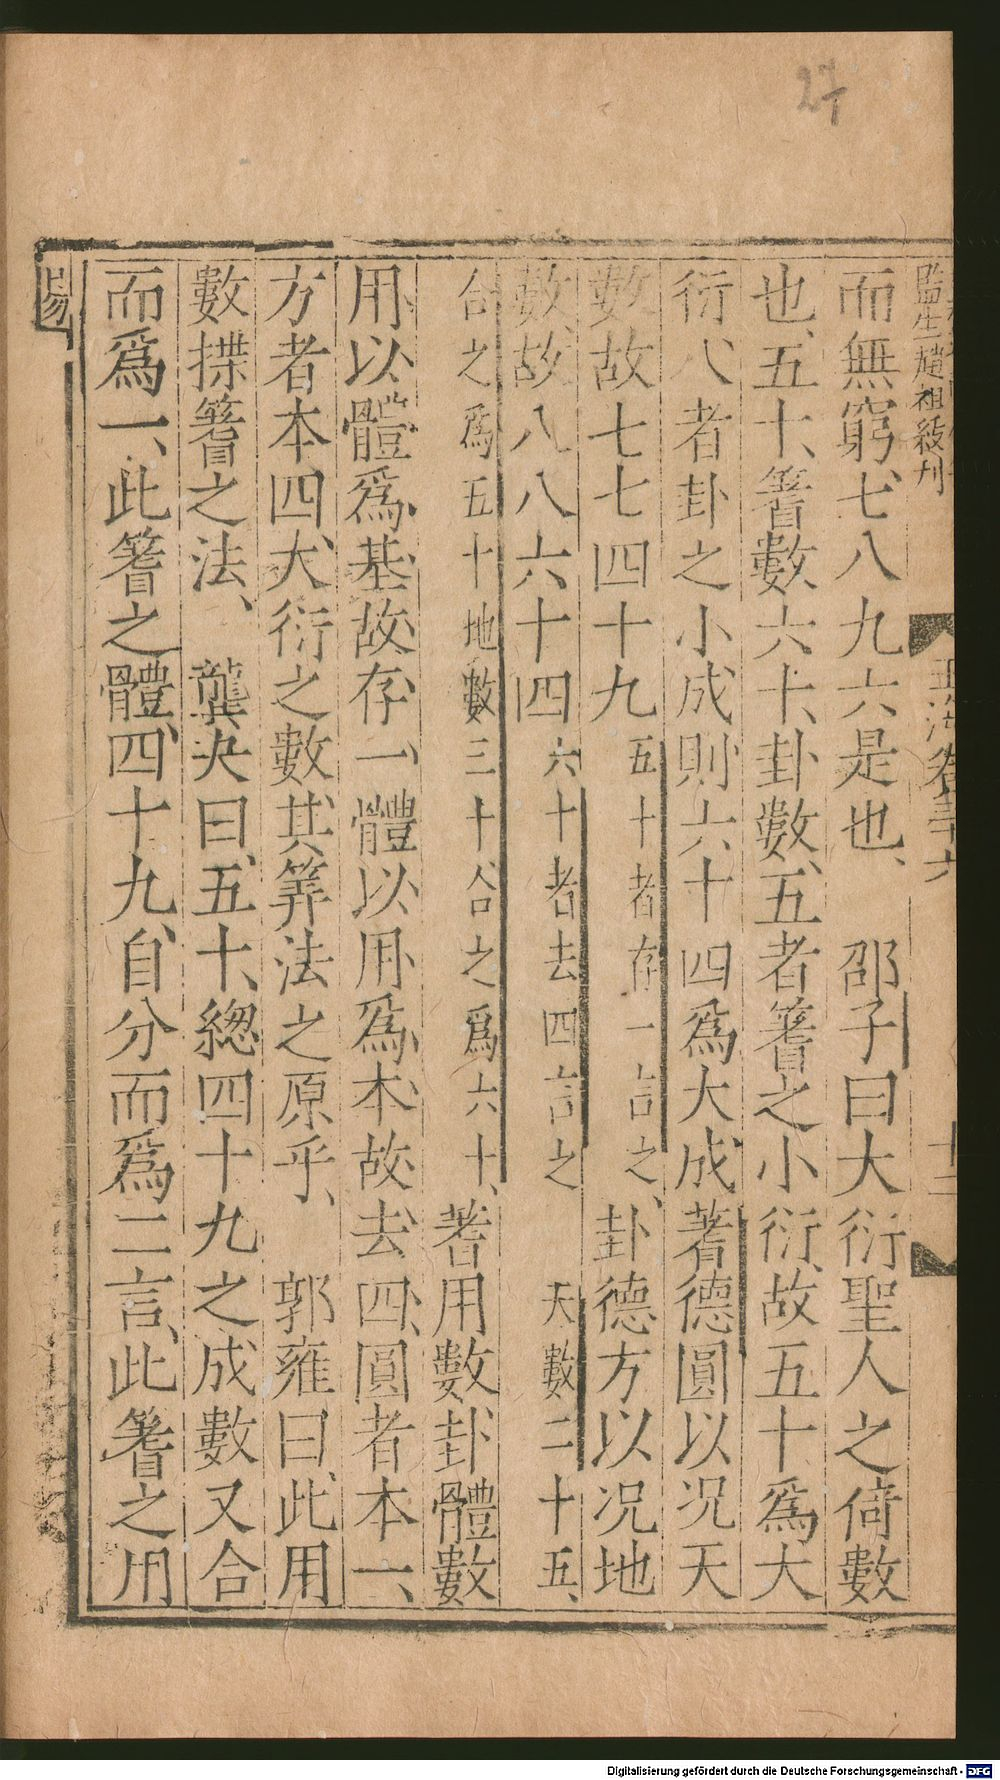 監生趙祖綬刊
玉海卷三十六
而無窮、七八九六是也、邵子曰大衍聖人之倚數
也、五十、蓍數六十、卦數、五者蓍之小衍、故五十爲大
衍、八者卦之小成則六十四爲大成蓍德圓以况天
數故七七四十九五十者存一言之、卦德方以况地
數、故八八六十四六十者去四言之天數二十五、
合之爲五十地數三十合之爲六十、蓍用數卦體數
用以體爲基故存一體以用爲本故去四、圓者本一、
方者本四、大衍之數其筭法之原乎、郭雍曰、此用
數揲蓍之法、龔夬曰、五十、總四十九之成數又合
而爲一、此蓍之體、四十九、自分而爲二言、此蓍之用
易
27
Digitalisierung gefördert durch die Deutsche Forschungsgemeinschaft - DFG